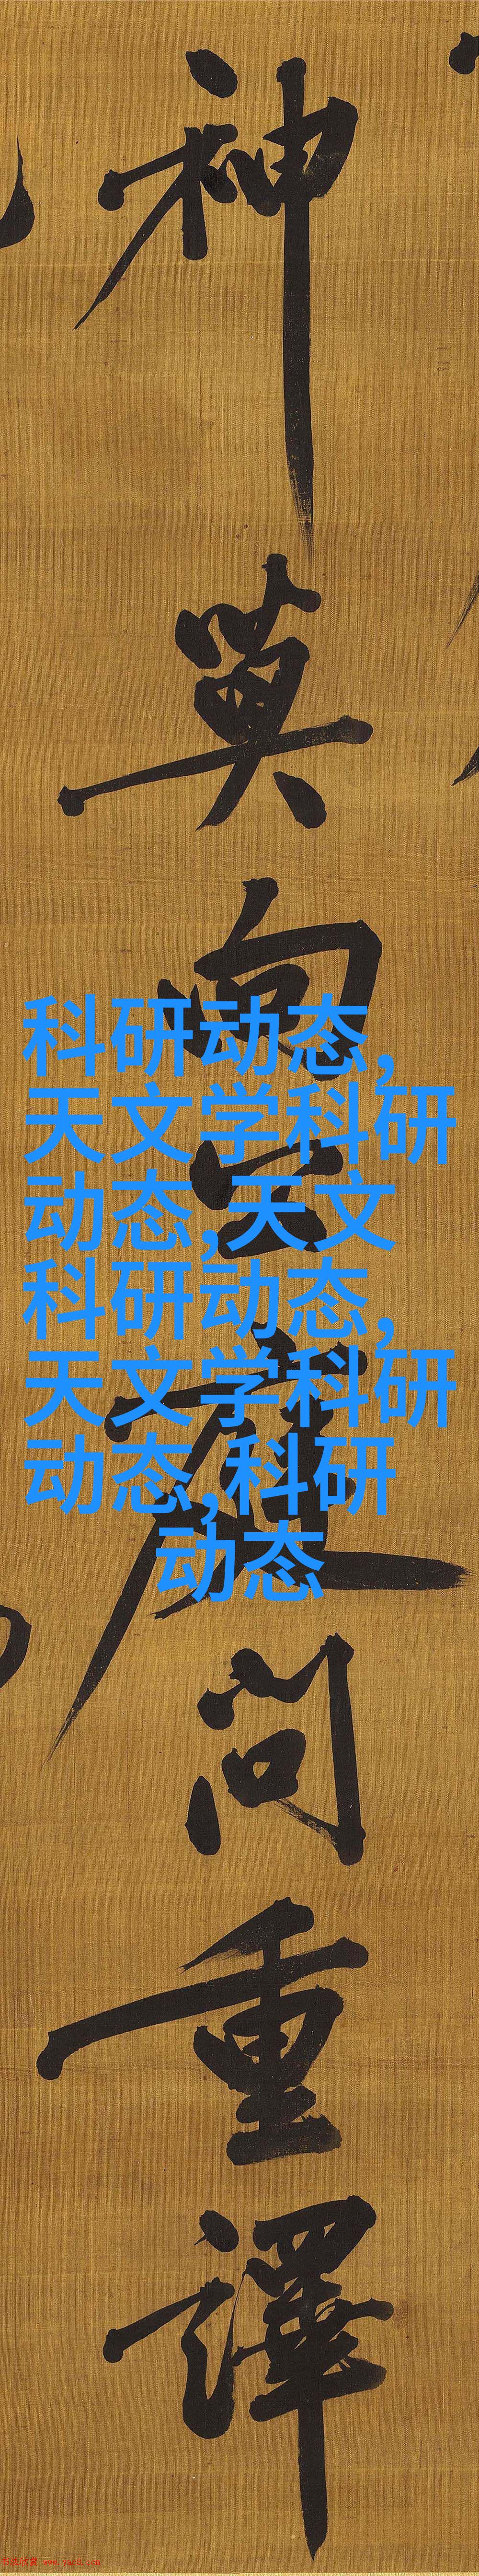 神英向臣應問重譯
科研动态,
天文学科研
动态,天文
科研动态,
天文学科研
动态,科研
动态